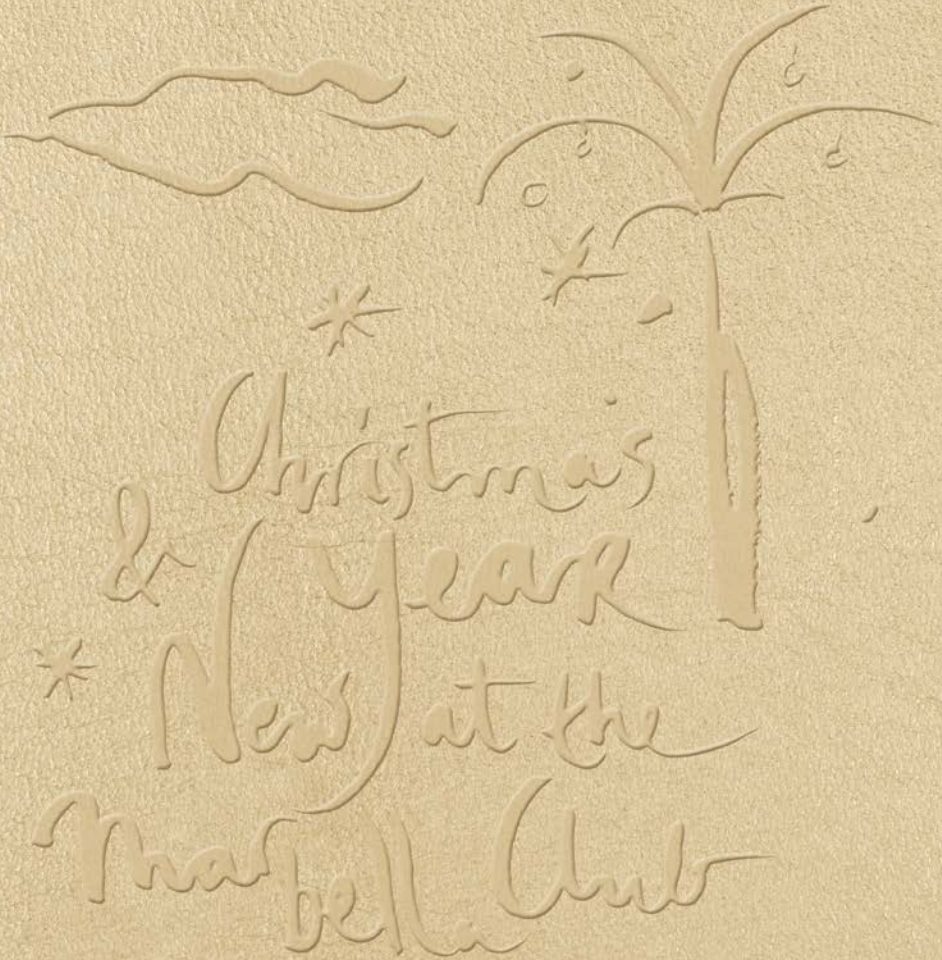 Christmas
& New Year
at the
Marbella Club